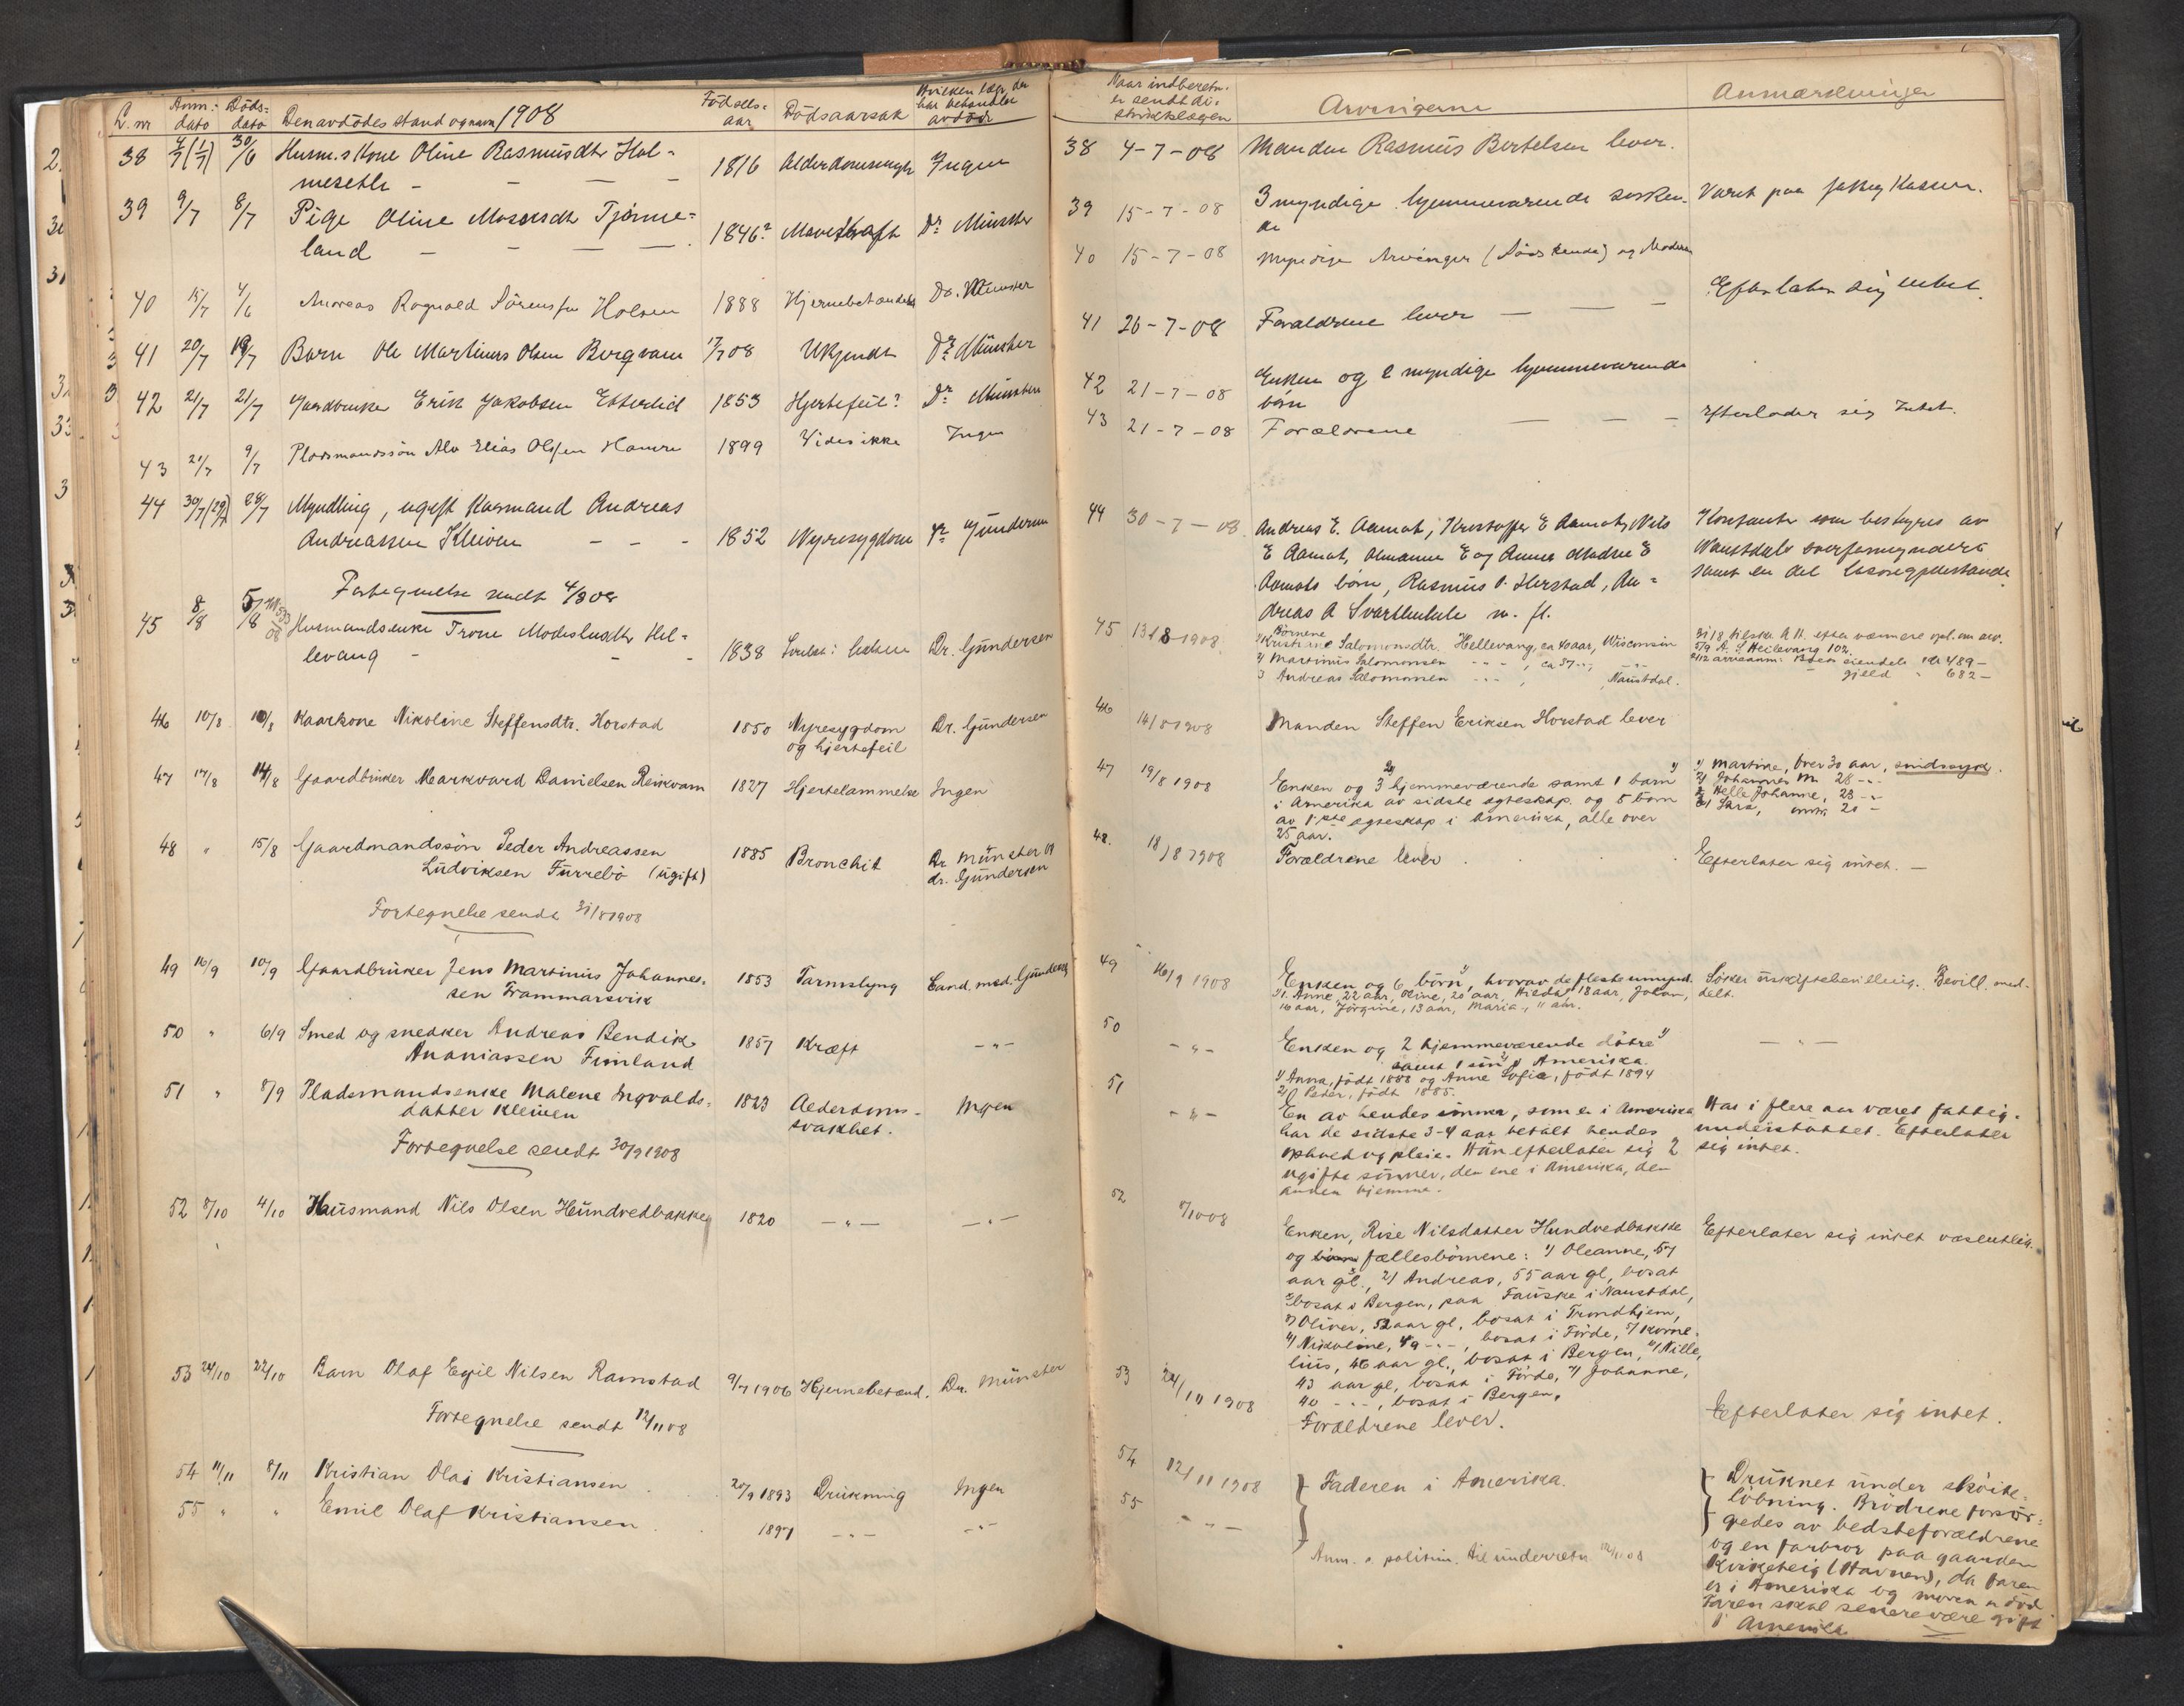 L. nr Anm.- dato Döds- dato Den avdödes stand og navn 1908 Födsels- aar Dödsaarsak Hvilken læge der har behandlet avdöde
38 4/7 (1/7) 30/6 Husm.s Kone Oline Rasmusdtr Hol-
mesetli - - - 1816 Alderdomssvagh Ingen
39 9/7 8/7 Pige Oline Mosesdtr Tjönne-
land - - - 1846? Mavekræft Dr Münster
40 15/7 4/6 Andreas Ragnvald Sörensen Holsen 1888 Hjernebetændelse Dr. Münster
41 20/7 19/7 Barn Ole Martinus Olsen Bergvam 17/7 08 Ukjendt Dr Münster
42 21/7 21/7 Gardbruker Erik Jakobsen Espelid 1853 Hjertefeil? Dr Münster
43 21/7 9/7 Pladsmandssön Alv Elias Olsen Hamre 1899 Vides ikke Ingen
44 30/7 (29/7) 28/7 Myndling, ugift Kaarmand Andreas
Andreassen Kleiven - - - 1852 Nyresygdom Dr Gundersen
Fortegnelse sendt 4/8 08
45 8/8 5/8 Husmandsenke Trone Modestusdtr Hel-
levang - - - 1838 Svulst i halsen Dr. Gundersen
46 10/8 10/8 Kaarkone Nikoline Steffensdtr. Horstad 1850 Nyresygdom Dr. Gundersen
og hjertefeil
47 17/8 14/8 Gaardbruker Markvard Danielsen Reikvam 1827 Hjertelammelse Ingen
48 " 15/8 Gaardmandssön Peder Andreassen 1885 Bronchit Dr Münster og
Ludviksen Furrebö (ugift) dr. Gundersen
Fortegnelse sendt 31/8 1908
49 16/9 10/9 Gaardbruker Jens Martinus Johannes- 1853 Tarmslyng Cand. med. Gundersen
sen Frammarsvik
50 " 6/9 Smed og snedker Andreas Bendik 1857 Kræft -"-
Ananiassen Fimland
51 " 8/9 Pladsmandsenke Malene Ingvalds- 1823 Alderdoms- Ingen
datter Kleiven svakhet.
Fortegnelse sendt 30/9 1908
52 8/10 4/10 Husmand Nils Olsen Hundvedbakke 1820 -"- -"-
53 24/10 22/10 Barn Olaf Egil Nilsen Ramstad 9/7 1906 Hjernebetænd. Dr. Münster
Fortegnelse sendt 12/11 08
54 11/11 8/11 Kristian Olai Kristiansen 20/9 1893 Drukning Ingen
55 " " Emil Olaf Kristiansen 1897 -"- -"-
Naar indberetn. er sendt di- striktslægen Arvingerne Anmærkninger
38 4-7-08 Manden Rasmus Bertelsen lever.
39 15-7-08 3 myndige hjemmeværende sösken- Været paa fattig Kassen.
de
40 15-7-08 Myndige Arvinger (Södskende) og Moderen
Efterlater sig intet.
41 26-7-08 Forældrene lever - - -
42 21-7-08 Enken og 2 myndige hjemmeværende
börn
43 21-7-08 Forældrene - - - Efterlader sig Intet.
44 30-7-08 Andreas E. Aamot, Kristoffer E Aamot, Nils Kontanter som bestyres av
E Aamot, Olianna E og Anna Madsine E Naustdals overformynderi
Aamots börn, Rasmus P. Herstad, An- samt en del lösöregjenstande
dreas A Svartelukele m. fl.
45 13/8 1908 Börnene
1) Kristiane Salomonsdtr. Hellevang, ca 40 aar, Wisconsin
2) Martinus Salomonsen -"-, ca 37 -"-, -"- 5/9 A. S. Hellevang 102.
3 Andreas Salomonsen -"-, Naustdal. Boets eiendele kr 489-
gjeld " 682-
46 14/8 1908 Manden Steffen Eriksen Horstad lever
47 19/8 1908 Enken og 3 hjemmeværende samt 1 barn 1) Martine, over 30 aar, sindssyk.
i Amerika av sidste egteskap og 5 barn 2) Johannes M. 28 -"-
av 1ste egteskap i Amerika, alle over 3) Helle Johanne, 23 -"-
25 aar. 4) Sara, omtr. 20 -
48. 18/8 1908 Forældrene lever Efterlater sig intet. -
49 16/9 1908 Enken og 6 börn 1), hvorav de fleste umynd. Söker uskiftebevilling. Bevill. med-
1). Anne, 22 aar, Oline, 20 aar, Hilda, 18 aar, Johan, delt.
16 aar, Jörgine, 13 aar, Maria, 11 aar.
50 -"- Enken og 2 hjemmeværende döttre 1) -"-
samt 1 sön 2) i Amerika.
1) Anna, födt 1888 og Anne Sofie, födt 1894
2) Peter, födt 1885.
51 -"- En av hendes sönner, som er i Amerika Har i flere aar været fattig-
har de sidste 3-4 aar betalt hendes understöttet. Efterlater
ophold og pleie. Hun efterlater sig 2 sig intet.
ugifte sönner, den ene i Amerika, den
anden hjemme.
52 8/10 08 Enken, Rise Nilsdatter Hundvedbakke Efterlater sig intet væsentlig.
og fællesbörnene: 1) Oleanne, 57
aar gl., 2) Andreas, 55 aar gl, bosat
bosat i Bergen, paa Fauske i Naustdal,
3) Oliver, 52 aar gl, bosat i Trondhjem,
4) Nikoline, 49 -"-, bosat i Förde, 5) Korne-
lius, 46 aar gl., bosat i Bergen, 6) Nille,
43 aar gl, bosat i Förde, 7) Johanne,
40 -"-, bosat i Bergen.
53 24/10 1908 Forældrene lever. Efterlater sig intet.
54 12/11 1908 Faderen i Amerika. Druknet under sköite-
55 -"- löbning. Brödrene forsör-
gedes av bedsteforældrene
Anm. s. politim. til underretn. 12/11 08 og en farbror paa gaarden
Kvikeheig (Havnen), da faren
er i Amerika og moren er död
Faren skal senere være gift
i Amerika